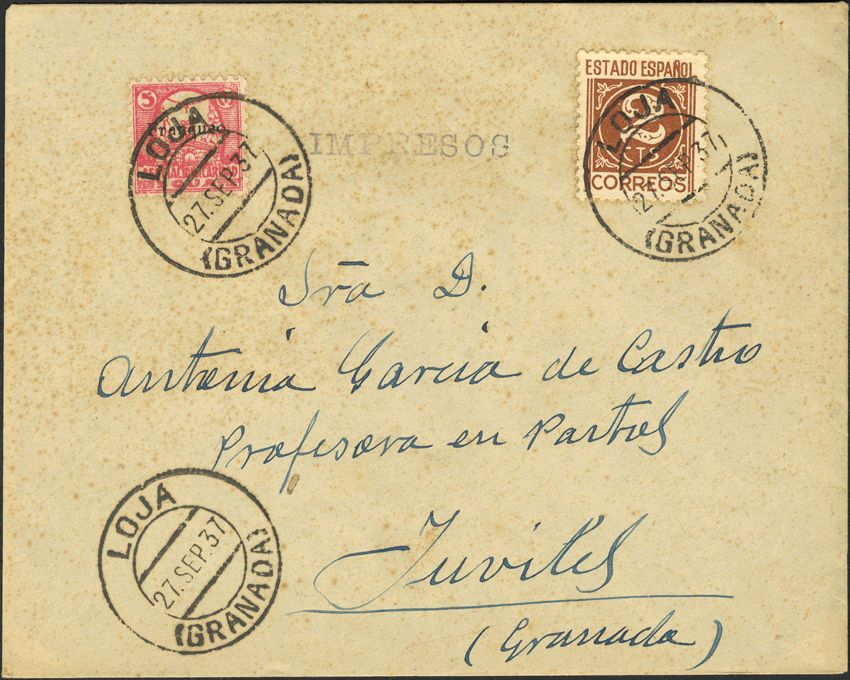 5
ESTADO ESPAÑOL
2
CTS
CORREOS
LOJA
27.SEP.37
(GRANADA)
IMPRESOS
LOJA
27.SEP.37
(GRANADA)
Sra D.
Antonia Garcia de Castro
Profesora en Partos
Juviles
(Granada)
LOJA
27.SEP.37
(GRANADA)